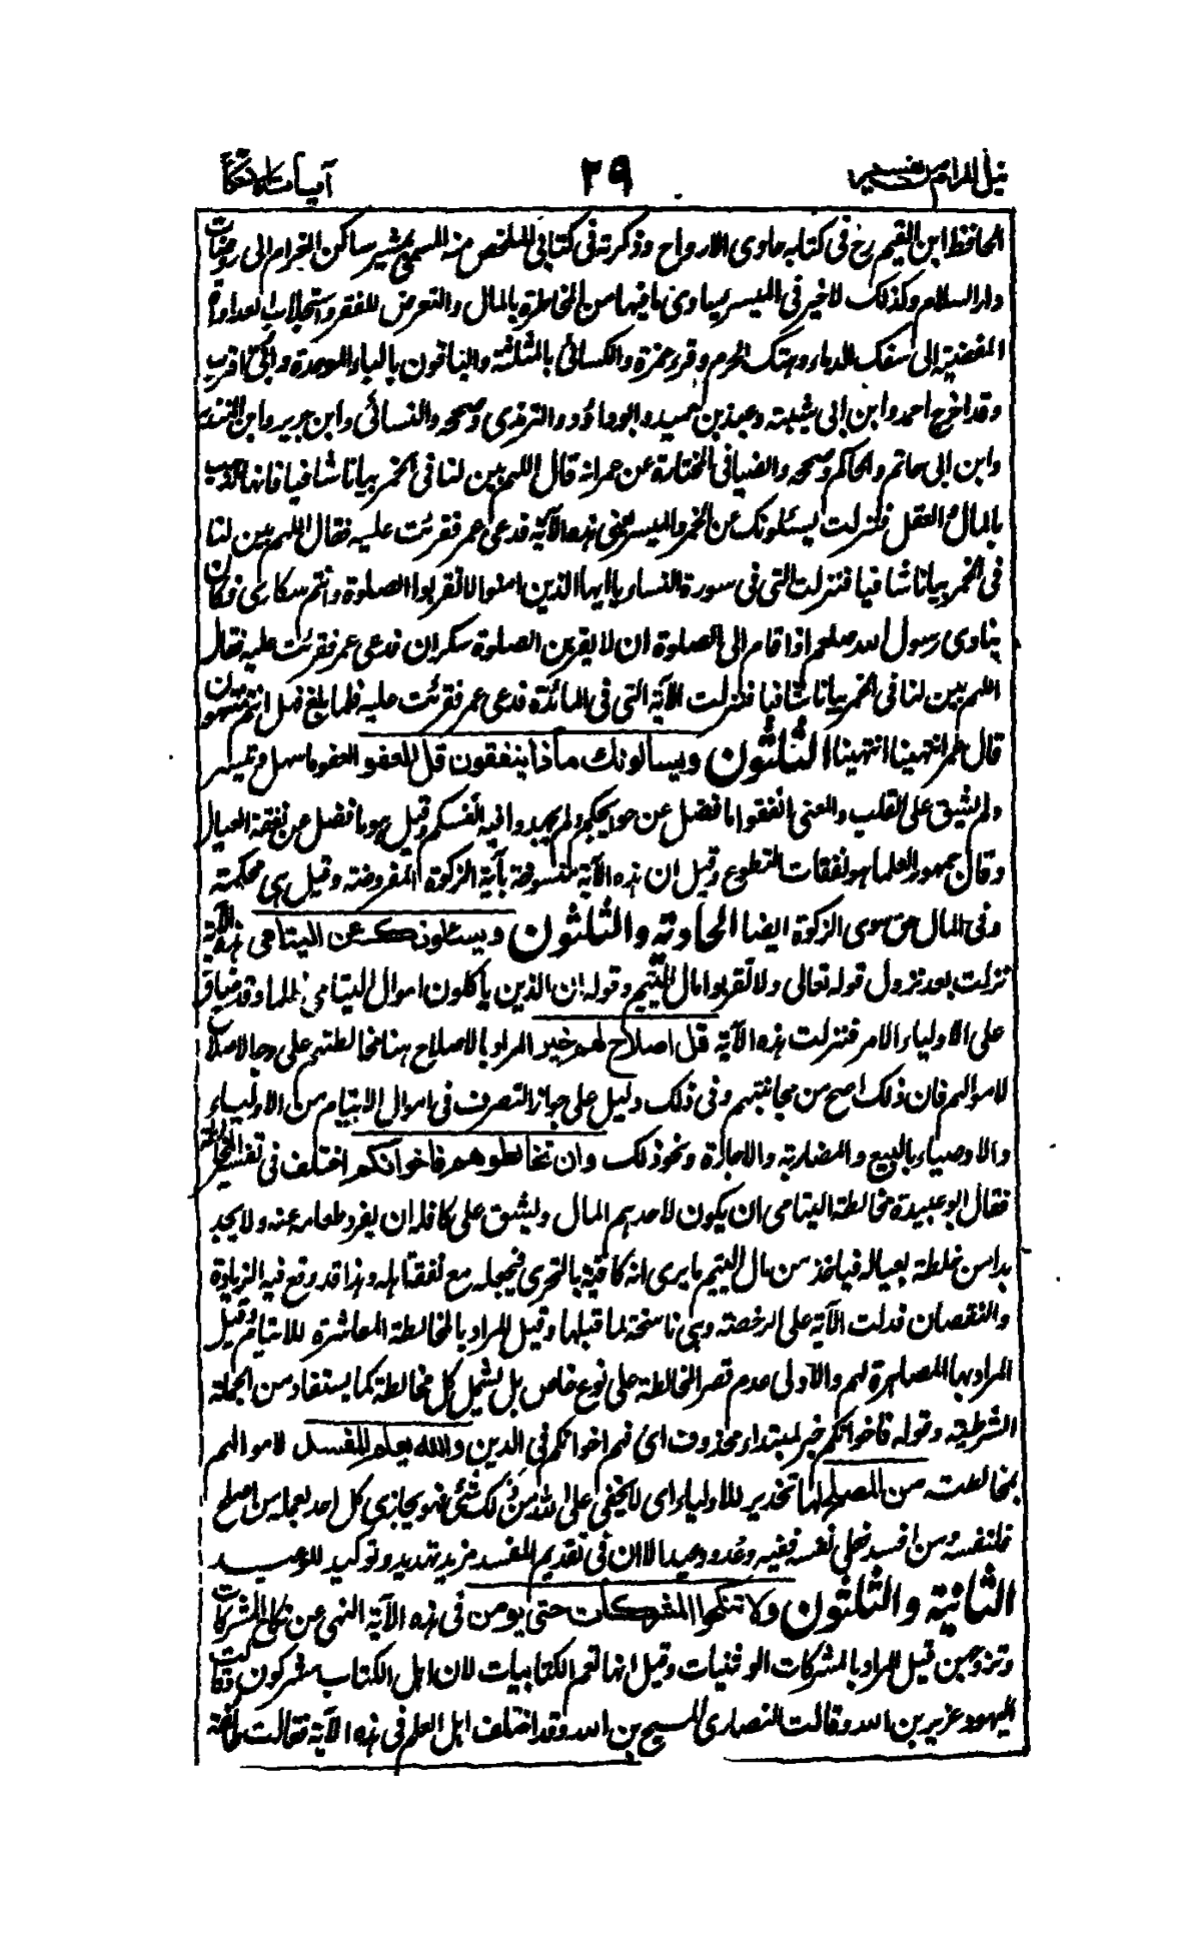 نيل المرام من تفسير ٣٩ آيات الاحكام
الحافظ ابن القيم رح فى كتابه حاوى الارواح وذكرته فى كتابى الملخص منه المسمى بمثير ساكن الغرام الى روضات
دار السلام وكذلك لا خير فى الميسر يساوى ما فيها من المخاطرة بالمال والتعرض للفقر واستجلاب العداوة
المفضية الى سفك الدماء وهتك الحرم وقرء حمزة والكسائى بالمثلثة والباقون بالباء الموحدة وابى اقرب
وقد اخرج احمد وابن ابى شيبته وعبد بن حميد وابو داؤد والترمذى وصححه والنسائى وابن جرير وابن المنذر
وابن ابى حاتم والحاكم وصححه والضيا فى المختارة عن عمر انه قال اللهم بين لنا فى الخمر بيانا شافيا فانها تذهب
بالمال والعقل فنزلت يسئلونك عن الخمر والميسر يعنى هذه الآية فدعى عمر فقرئت عليه فقال اللهم بين لنا
فى الخمر بيانا شافيا فنزلت التى فى سورة النساء يا ايها الذين امنوا لا تقربوا الصلوة وانتم سكارى فكان
ينادى رسول الله صلعم اذا قام الى الصلوة ان لا يقربن الصلوة سكران فدعى عمر فقرئت عليه فقال
اللهم بين لنا فى الخمر بيانا شافيا فنزلت الآية التى فى المائدة فدعى عمر فقرئت عليه فلما بلغ فهل انتم منتهون
قال عمر انتهينا انتهينا الثلثون ويسالونك ماذا ينفقون قل العفو العفو ما سهل وتيسر
ولم يشق على القلب والمعنى انفقوا ما فضل عن حوايجكم ولم تجهدوا فيه انفسكم وقيل هو ما فضل عن نفقة العيال
وقال جمهور العلما هو نفقات التطوع وقيل ان هذه الآية منسوخة بآية الزكوة المفروضة وقيل هى محكمة
وفى المال حق سوى الزكوة ايضا الحادية والثلثون ويسئلونك عن اليتامى هذه الآية
نزلت بعد نزول قوله تعالى ولا تقربوا مال اليتيم وقوله ان الذين يأكلون اموال اليتامى ظلما وقد ضاق
على الاولياء الامر فنزلت هذه الآية قل اصلاح لهم خير المراد بالاصلاح هنا مخالطتهم على وجه الاصلاح
لاموالهم فان ذلك اصح من مجانبتهم وفى ذلك دليل على جواز التصرف فى اموال الايتام من الاولياء
والاوصياء بالبيع والمضاربة والاجارة ونحو ذلك وان تخالطوهم فاخوانكم اختلف فى تفسير المخالطة
فقال ابو عبيدة مخالطة اليتامى ان يكون لاحدهم المال ويشق على كافله ان يفرد طعامه عنه ولا يجد
بدا من خلطة بعياله فياخذ من مال اليتيم ما يرى انه كافيه بالتحرى فيجعله مع نفقة اهله وهذا قد وقع فيه الزيادة
والنقصان فدلت الآية على الرخصة وهى ناسخة لما قبلها وقيل المراد بالمخالطة المعاشرة للايتام وقيل
المراد بها المصاهرة لهم والاولى عدم قصر المخالطة على نوع خاص بل يشمل كل مخالطة كما يستفاد من الجملة
الشرطية وقوله فاخوانكم خبر لمبتداء محذوف اى فهم اخوانكم فى الدين والله يعلم المفسد لاموالهم
بمخالطته من المصلح لها تحذير للاولياء اى لا يخفى على الله من ذلك شئ فهو يجازى كل احد بعمله من اصلح
فلنفسه ومن افسد فعلى نفسه ففيه وعد ووعيد الا ان فى تقديم المفسد مزيد تهديد وتوكيد للوعيد
الثانية والثلثون ولا تنكحوا المشركات حتى يومن فى هذه الآية النهى عن نكاح المشركات
وتزوجهن قيل المراد بالمشركات الوثنيات وقيل انها تعم الكتابيات لان اهل الكتاب مشركون وقالت
اليهود عزير بن الله وقالت النصارى المسيح بن الله وقد اختلف اهل العلم فى هذه الآية فقالت طائفة